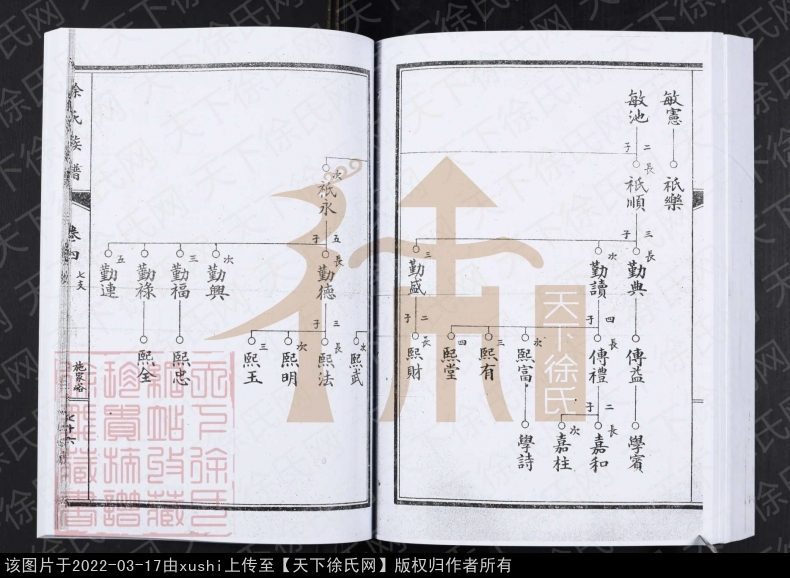 敏憲
祇樂
敏池
二子
長
祇順
三子
長
勤典
傳益
學賓
次
勤讀
四子
長
傳禮
二子
長
嘉和
次
嘉柱
次
熙富
學詩
三
熙有
四
熙堂
三
勤盛
二子
長
熙財
次
熙武
次
祇永
五子
長
勤德
三子
長
熙法
次
熙明
三
熙玉
次
勤興
三
勤福
熙忠
四
勤祿
熙全
五
勤連
徐氏族譜
卷四
七支
施家峪
天下徐氏
天下徐氏網
该图片于2022-03-17由xushi上传至【天下徐氏网】版权归作者所有